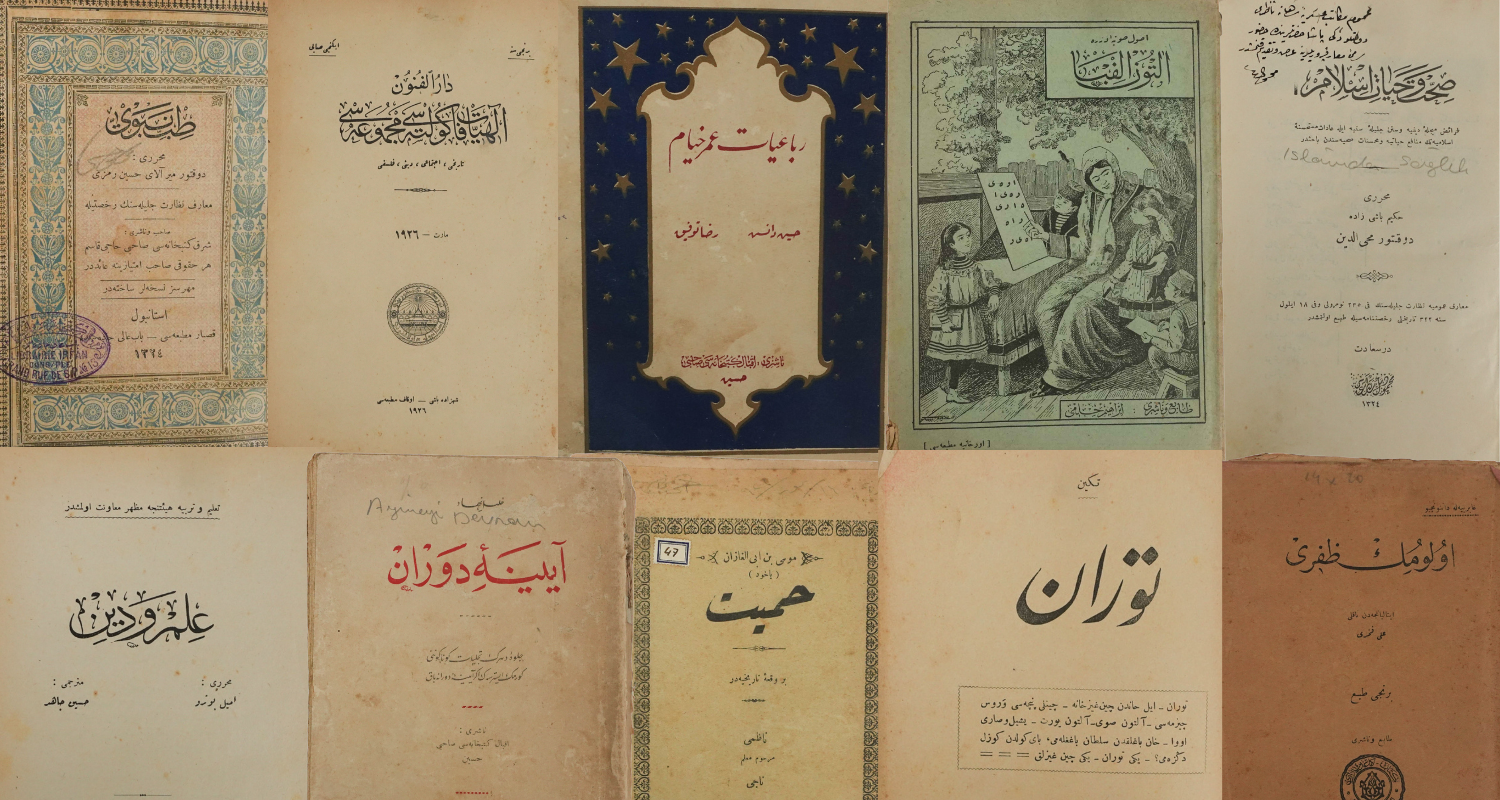 طب نبوی
محرری :
دوقتور میر آلای حسین رمزی
معارف نظارت جلیله‌سنك رخصتیله
صاحب و ناشری :
شرق كتبخانه‌سی صاحبی حاجی قاسم
هر حقوقی صاحب امتیازینه عائددر
مهرسز نسخه‌لر ساخته‌در
استانبول
قصبار مطبعه‌سی — باب عالی
١٣٢٤
LIBRAIRIE IRFAN
برنجی سنه
ایكنجی صایی
دار الفنون
الهیات فاكولته‌سی مجموعه‌سی
تاریخی ، اجتماعی ، دینی ، فلسفی
مارت — ١٩٢٦
شهزاده باشی — اوقاف مطبعه‌سی
١٩٢٦
رباعیات عمر خیام
حسین دانش رضا توفیق
ناشری : اقبال كتبخانه‌سی صاحبی
حسین
اصول صوتیه اوزره
طابع و ناشری : ابراهیم حلمی
[ اورخانیه مطبعه‌سی ]
صحت و حیات اسلام
Islamda Saglik
محرری
حكیم باشی زاده
دوقتور محی الدین
معارف عمومیه نظارت جلیله‌سنك فی ٢٣٥ نومرولی و فی ١٨ ایلول
سنه ٣٢٢ تاریخلی رخصتنامه‌سیله طبع اولنمشدر
درسعادت
١٣٢٤
تعلیم و تربیه هیئتنجه مظهر معاونت اولمشدر
علم و دین
محرری : مترجمی :
امیل بوترو حسین جاهد
Ayineyi Devran
آیینهٔ دوران
ناشری :
اقبال كتبخانه‌سی صاحبی
حسین
47
موسی بن ابی الغازان
( یاخود )
حمیت
بر وقعهٔ تاریخیه‌در
ناظمی
مرحوم معلم
ناجی
تكین
توران
توران - ایل خاندن چین غیزخانه - چینلی پنجه‌سی وروس
چیزمه‌سی - آلتون صوی - آلتون یورت - یشیل و صاری
اووا - خان باغلقدن سلطان باغغله‌می ، بای كولدن كوزل
دكزه‌می؟ - یكی توران - یكی چین غیزلق
اولومك ظفری
ایتالیانجه‌دن ناقلی
علی فخری
برنجی طبع
طابع و ناشری